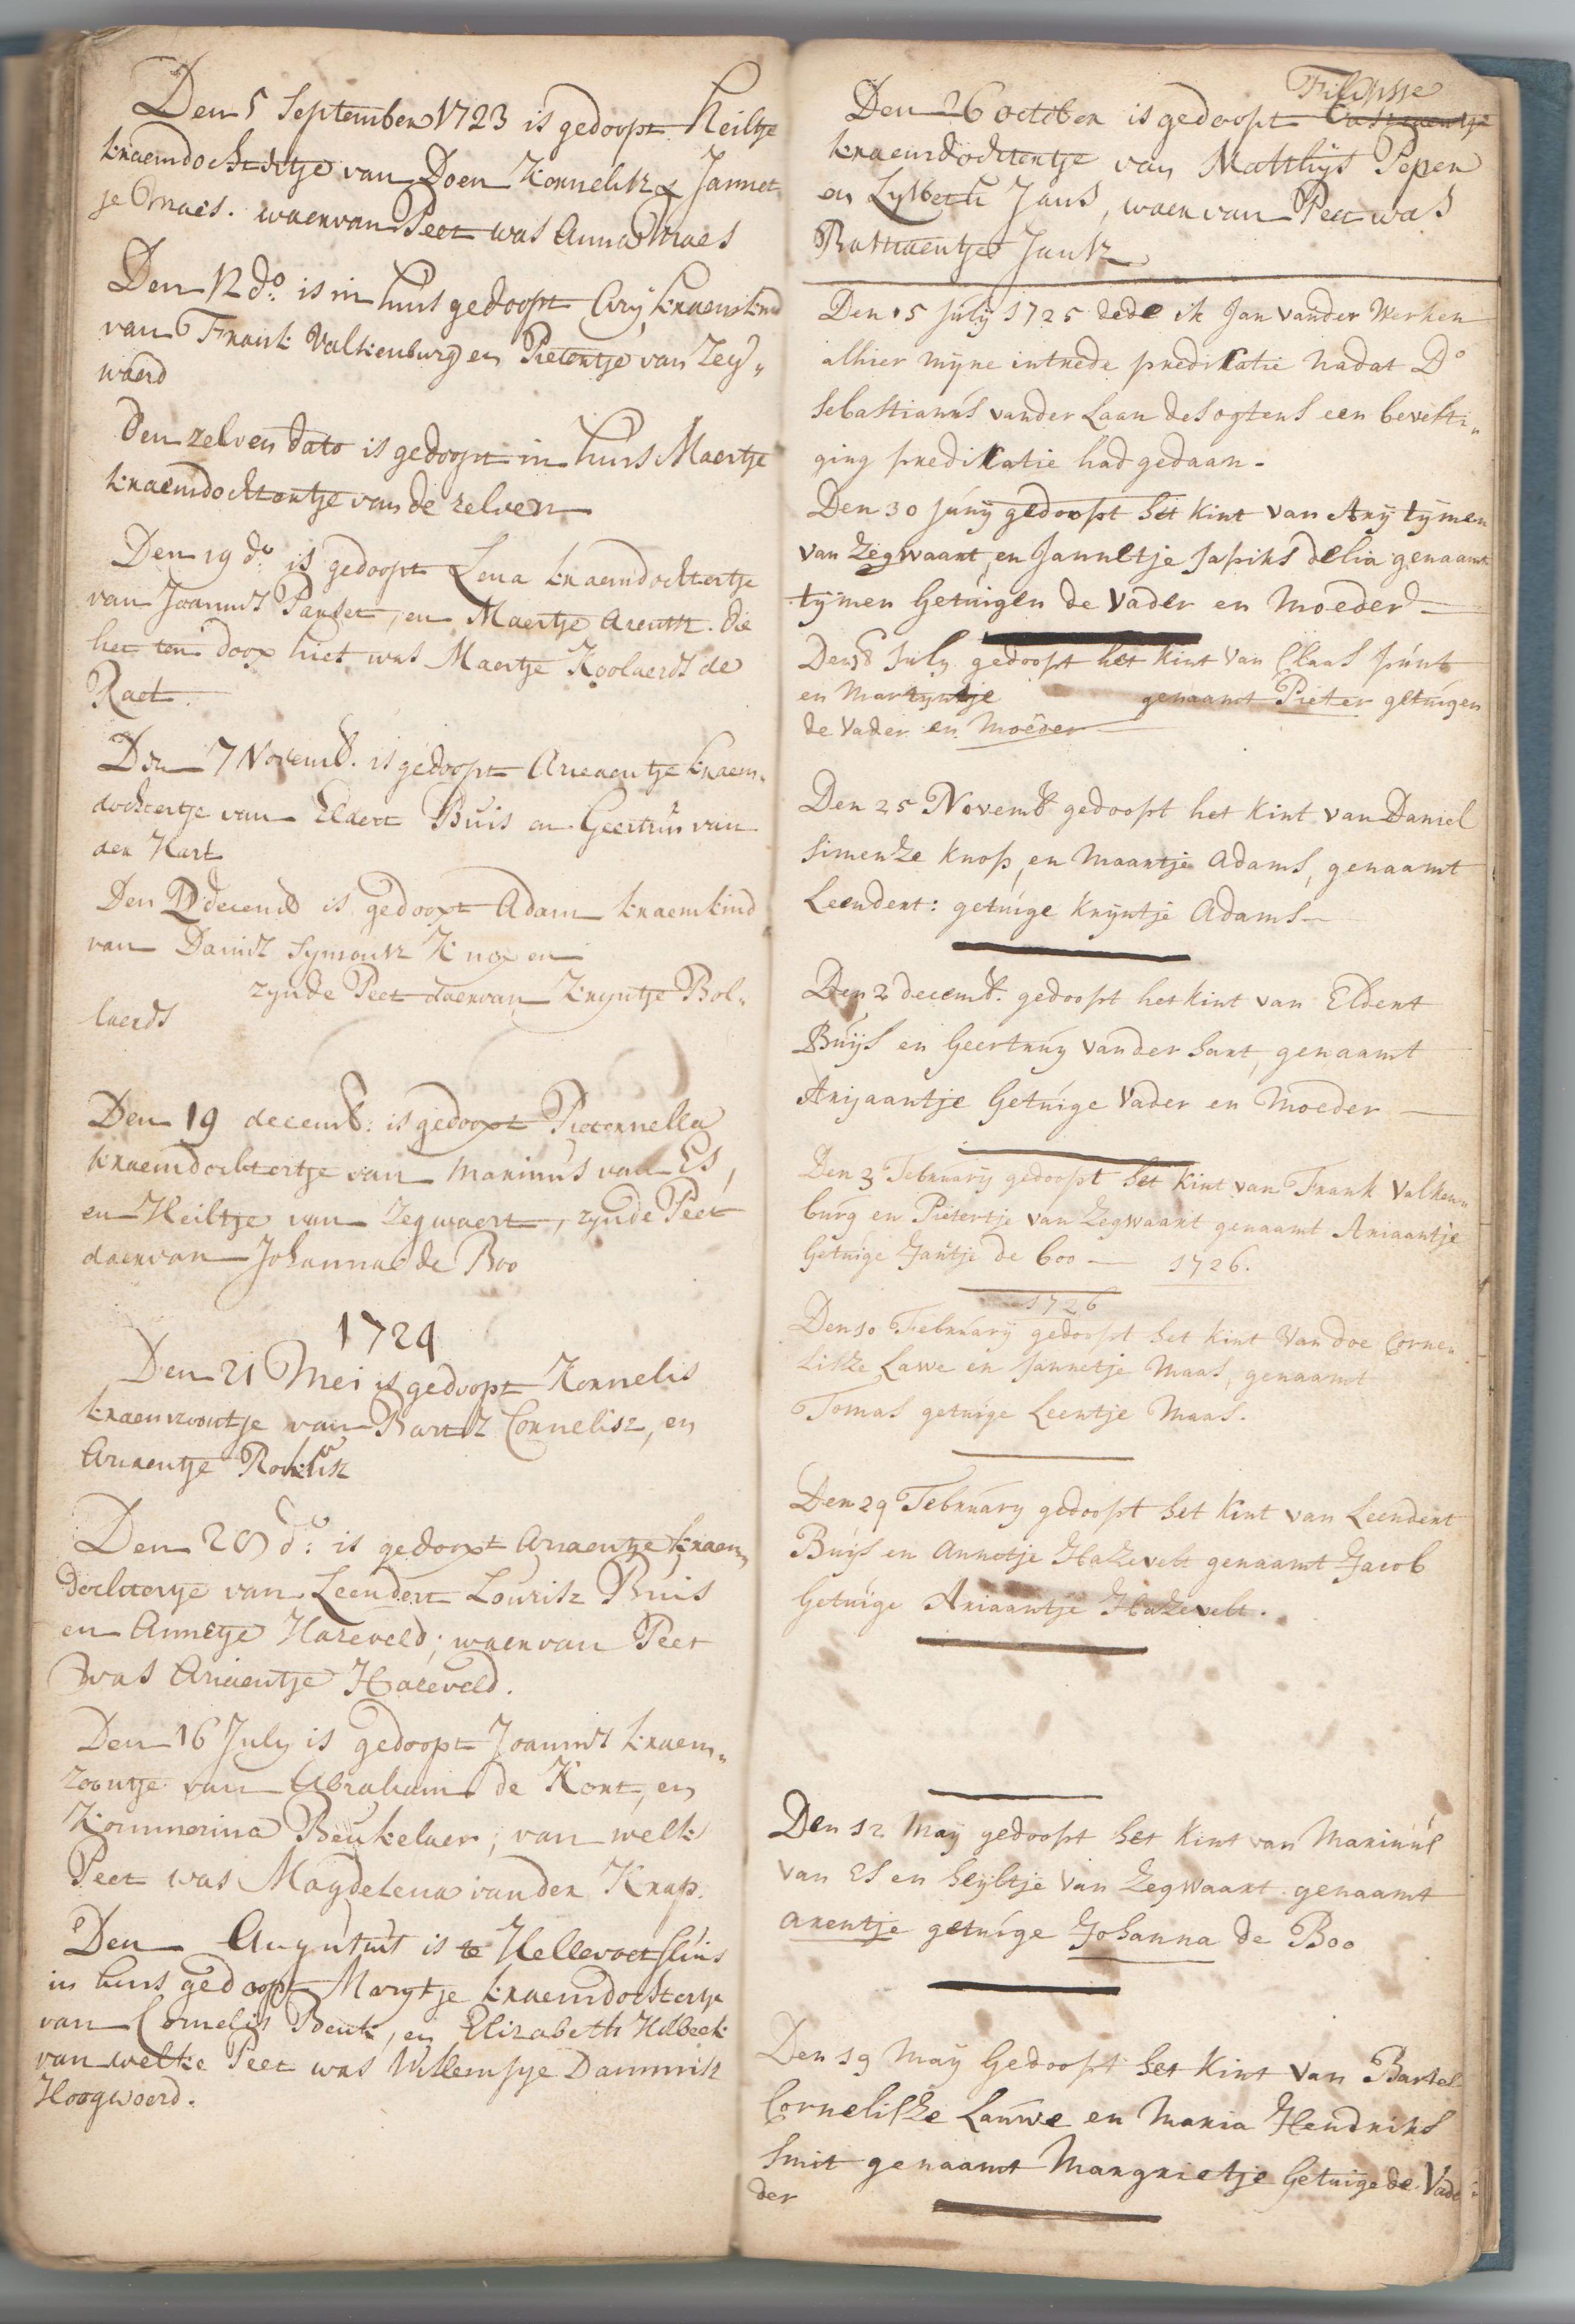 Den 5 September 1723 is gedoopt Heiltje
kraemdochtertje van Doen Kornelisz & Jannet
je Maes. waervan Peet was Anna Maes
Den 12 do. is in huis gedoopt Ary kraemkind
van Frank Valkenburg en Pietertje van Zeg„
waerd
Den zelven dato is gedoopt in huis Maertje
kraemdochtertje van de zelven
Den 19 do. is gedoopt Lena kraemdochtertje
van Joannis , en Maertje Arentsz. die
het ten doop hiet was Maertje Koolaerds de
Raet.
Den 7 Novemb. is gedoopt Ariaentje kraem„
dochtertje van Eldert Buis en Geertruy van
der Hart
Den 12 decemb is gedoopt Adam kraemkind
van Daniel Symonsz Knop en
zynde Peet daervan Kryntje Bol„
laerds
Den 19 decemb: is gedoopt Pieternella
kraemdochtertje van Marinus van Es,
en Heiltje van Zegwaert, zynde Peet
daervan Johanna de Boo
1724
Den 21 Mei is gedoopt Kornelis
kraemzoontje van Bartel Cornelisz, en
Ariaentje
Den 28 do: is gedoopt Ariaentje kraem„
dochtertje van Leendert Lourisz Buis
en Annetje Hazeveld; waervan Peet
was Ariaentje Hazeveld.
Den 16 July is gedoopt Joannis kraem„
zoontje van Abraham de Kort, en
Kommerina Beukelaer, van welk
Peet was Magdelena vander Knap.
Den Augustus is te Hellevoetsluis
in huis gedoopt Marytje kraemdochtertje
van Cornelis Beuk, en Elizabeth
van welke Peet was Willemtje Dammisz
Hoogwoerd.
Filipsje
Den 26 october is gedoopt
kraemdochtertje van Matthys Pepen
en Lysbeth Jans, waervan Peet was
Bastiaentje Jansz
Den 15 July 1725 dede ik Jan vander Werken
alhier myne intrede predikatie nadat Do
Sebastianus vander Laan des ogtens een bevesti„
ging predikatie had gedaan.
Den 30 juny gedoopt het kint van Ary tymen
van Zegwaart, en Jannetje Japiks delia genaamt
tymen Getuigen de Vader en Moeder
Den 8 July gedoopt het kint van Claas punt
en Martyntje genaamt Pieter getuigen
de Vader en Moeder
Den 25 Novemb gedoopt het kint van Daniel
Simensze knop, en Maartje Adams, genaamt
Leendert: getuige Kryntje Adams
Den 2 decemb. gedoopt het kint van Eldert
Buijs en Geertruy vander hart, genaamt
Arijaantje Getuige Vader en Moeder
Den 3 February gedoopt het kint van Frank Valken„
burg en Pietertje van Zegwaart genaamt Ariaantje
Getuige Jantje de boo 1726.
1726
Den 10 February gedoopt het kint van doe Corne„
lisze Lawe en Jannetje Maas, genaamt
Tomas getuige Leentje Maas.
Den 29 February gedoopt het kint van Leendert
Buijs en Annetje Hazevelt genaamt Jacob
Getuige Ariaantje Hazevelt.
Den 12 May gedoopt het kint van Marinus
van Es en heyltje van Zegwaart genaamt
arentje getuige Johanna de Boo
Den 19 May Gedoopt het kint van Bartel
Cornelisze Lauwe en Maria Hendriks
Smit genaamt Margrietje Getuige de Va
der